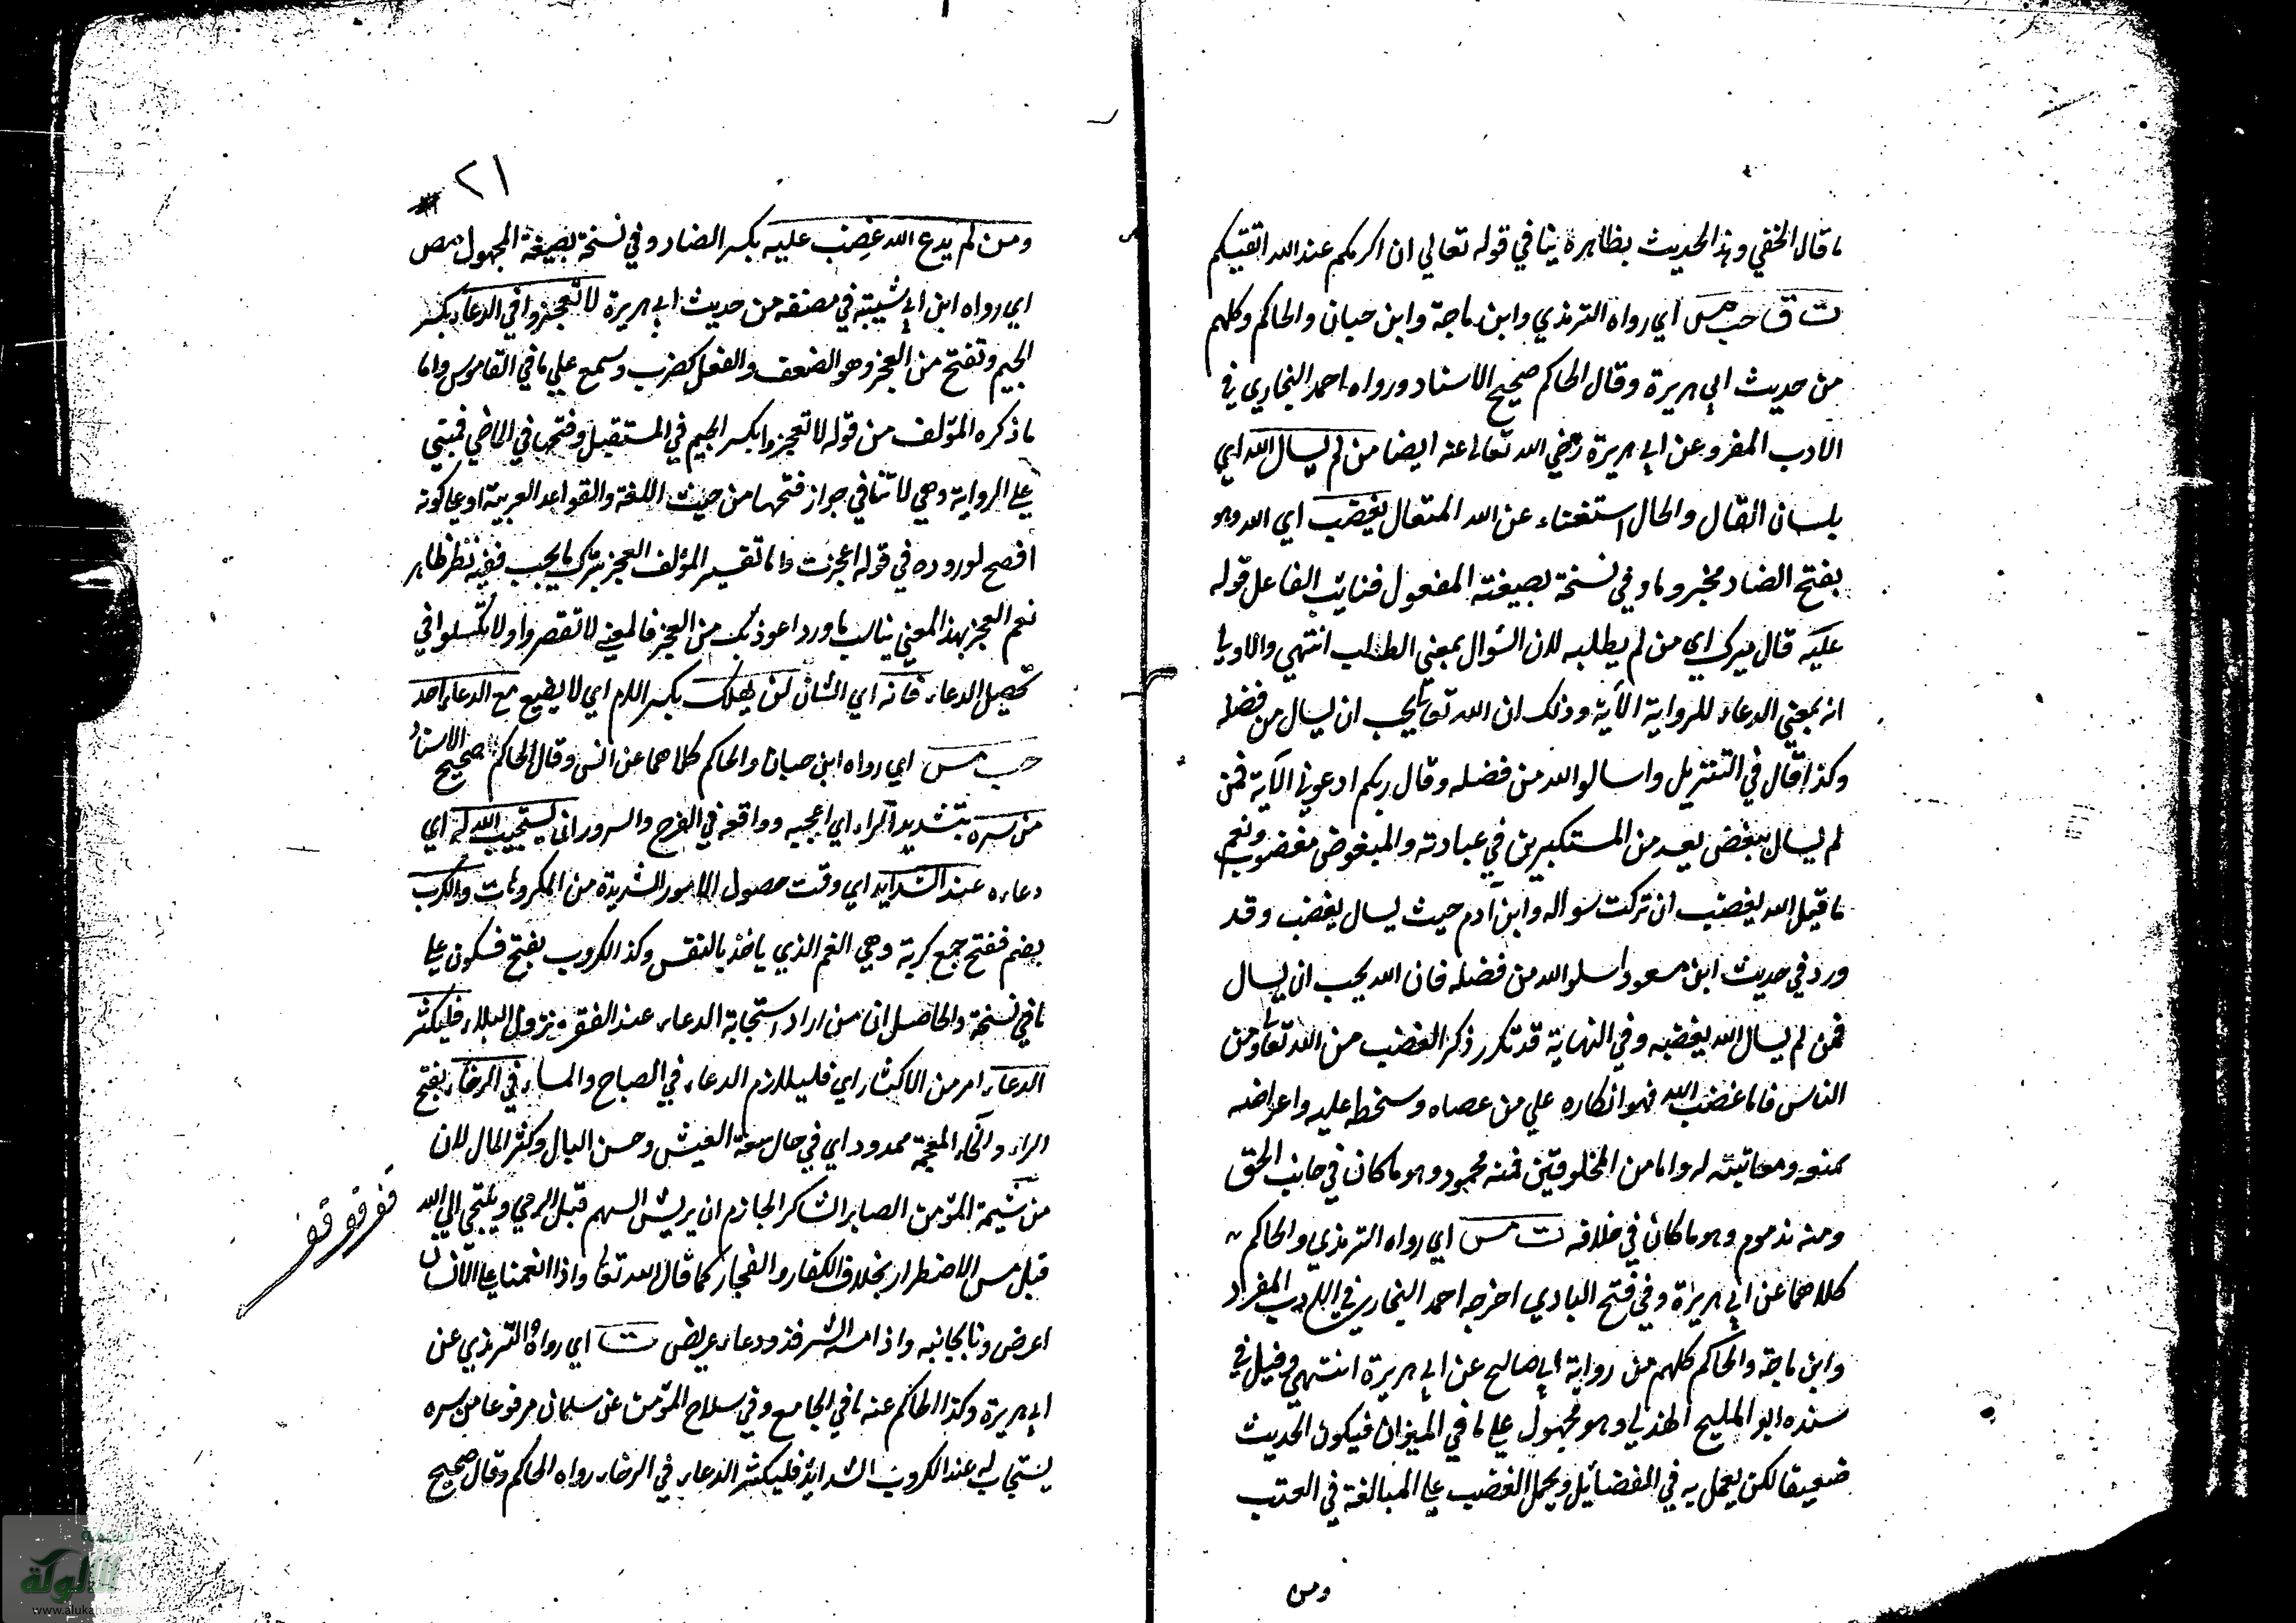 ما قال الحنفي وهذا الحديث بظاهره ينافي قوله تعالي ان اكرمكم عند الله اتقيكم
ت ق حب مس اي رواه الترمذي وابن ماجة وابن حبان والحاكم وكلهم
من حديث ابي هريرة وقال الحاكم صحيح الاسناد ورواه احمد البخاري في
الادب المفرد عن ابي هريرة رضي الله تعالى عنه ايضا من لم يسال الله اي
بلسان القال والحال استغناء عن الله المتعال يغضب اي الله وهو
بفتح الضاد مجزوما وفي نسخة بصيغة المفعول فنايب الفاعل قوله
عليه قال ميرك اي من لم يطلبه لان السؤال بمعني الطلب انتهي والاولي
انه بمعني الدعاء للرواية الآتية وذلك ان الله تعالي يحب ان يسال من فضله
وكذا قال في التنزيل واسالوا الله من فضله وقال ربكم ادعوني الآية فمن
لم يسال يبغض يعد من المستكبرين في عبادته والمبغوض مغضوب ونعم
ما قيل الله يغضب ان تركت سواله وابن آدم حيث يسال يغضب وقد
ورد في حديث ابن مسعود سلوا الله من فضله فان الله يحب ان يسال
فمن لم يسال الله يغضبه وفي النهاية قد تكرر ذكر الغضب من الله تعالي ومن
الناس فاما غضب الله فهو انكاره علي من عصاه وسخطه عليه واعراضه
عنه ومعاتبته له واما من المخلوقين فمنه محمود وهو ما كان في جانب الحق
ومنه مذموم وهو ما كان في خلافه ت مس اي رواه الترمذي والحاكم
كلاهما عن ابي هريرة وفي فتح الباري اخرجه احمد البخاري في الادب المفرد
وابن ماجة والحاكم كلهم من رواية ابي صالح عن ابي هريرة انتهي وقيل في
سنده ابو المليح الهذلي وهو مجهول علي ما في الميزان فيكون الحديث
ضعيفا لكن يعمل به في الفضائل ويحمل الغضب علي المبالغة في العتب
ومن
٢١
ومن لم يدع الله غضب عليه بكسر الضاد وفي نسخة بصيغة المجهول مص
اي رواه ابن ابي شيبة في مصنفه من حديث ابي هريرة لا تعجزوا في الدعاء بكسر
الجيم وتفتح من العجز وهو الضعف والفعل كضرب وسمع علي ما في القاموس واما
ما ذكره المؤلف من قوله لا تعجزوا بكسر الجيم في المستقبل وفتحها في الماضي فمبني
علي الرواية وهي لا تنافي جواز فتحها من حيث اللغة والقواعد العربية او علي كونه
افصح لوروده في قوله اعجزت واما تفسير المؤلف العجز بترك ما يجب ففيه نظر ظاهر
نعم العجز بهذا المعني يناسب ما ورد اعوذ بك من العجز فالمعني لا تقصروا ولا تكسلوا في
تحصيل الدعاء فانه اي الشان لن يهلك بكسر اللام اي لا يضيع مع الدعاء احد
حب مس اي رواه ابن حبان والحاكم كلاهما عن انس وقال الحاكم صحيح الاسناد
من سره بتشديد الراء اي اعجبه وواقعه في الفرح والسرور ان يستجيب الله له اي
دعاءه عند الشدايد اي وقت حصول الامور الشديدة من المكروهات والكرب
بضم ففتح جمع كربة وهي الغم الذي ياخذ بالنفس وكذا الكروب بفتح فسكون علي
ما في نسخة والحاصل ان من اراد استجابة الدعاء عند الفقر ونزول البلاء فليكثر
الدعاء امر من الاكثار اي فليلازم الدعاء في الصباح والمساء في الرخاء بفتح
الراء والخاء المعجمة ممدود اي في حال سعة العيش وحسن البال وكثر المال لان
من شيمة المؤمن الصابر الشاكر الجازم ان يريش السهم قبل الرمي ويلتجي الي الله
قبل مس الاضطرار بخلاف الكفار والفجار كما قال الله تعالي واذا انعمنا علي الانسان
اعرض ونا بجانبه واذا مسه الشر فذو دعاء عريض ت اي رواه الترمذي عن
ابي هريرة وكذا الحاكم عنه ما في الجامع وفي سلاح المؤمن عن سلمان مرفوعا من سره
يستجاب له عند الكروب الشدايد فليكثر الدعاء في الرخاء رواه الحاكم وقال صحيح
الألوكة
www.alukah.net